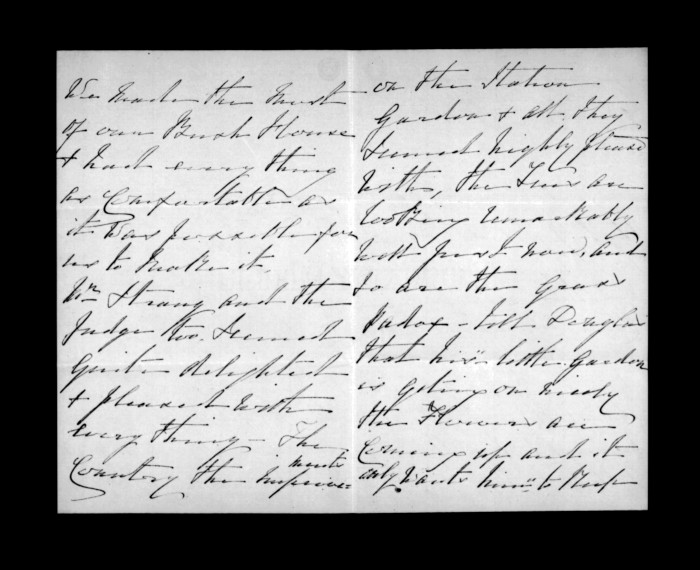 We made the most
of our Bush House
& had every thing
as Comfortable as
it was possible for
us to make it
Wm Strang and the
Judge too Seemed
quite delighted
& pleased with
every thing – The
Country the improve=
ments
on the Station
Garden & all they
Seemed highly pleased
with, the Trees are
looking remarkably
well just now, and
so are the Grass
padox – tell Douglas
that his little Garden
is geting on nicely
the Flowers are
Coming up and it
only wants him to keep